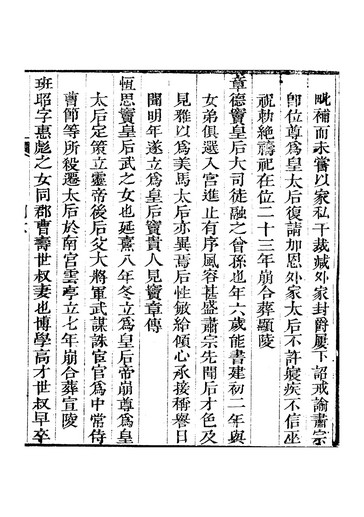 毗補而未嘗以家私干裁減外家封爵屢下詔戒諭肅宗
卽位尊爲皇太后復請加恩外家太后不許寢疾不信巫
祝勅絕禱祀在位二十三年崩合葬顯陵
章德竇皇后大司徒融之曾孫也年六歲能書建初二年與
女弟俱選入宮進止有序風容甚盛肅宗先聞后才色及
見雅以爲美馬太后亦異焉后性敏給傾心承接稱譽日
聞明年遂立爲皇后竇貴人見竇章傳
桓思竇皇后武之女也延熹八年冬立爲皇后帝崩尊爲皇
太后定策立靈帝後后父大將軍武謀誅宦官爲中常侍
曹節等所殺遷太后於南宮雲亭立七年崩合葬宣陵
班昭字惠彪之女同郡曹壽世叔妻也博學高才世叔早卒